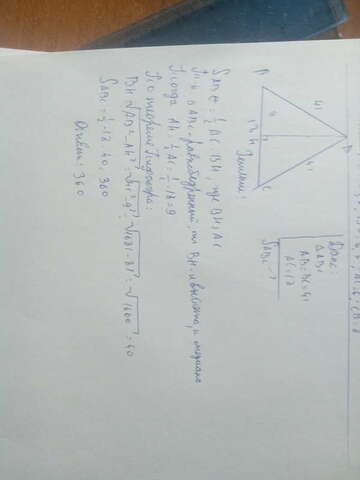 Дано:
△ABC
AB=BC=41
AC=18
SABC-?
B
41
41
A
H
C
18
Решение:
SABC=½AC·BH, где BH⊥AC
Т.к. △ABC-равнобедренный, то BH-и высота, и медиана
Тогда AH=½AC=½·18=9
По теореме Пифагора:
BH=√AB²-AH²=√41²-9²=√1681-81=√1600=40
SABC=½·18·40=360
Ответ: 360